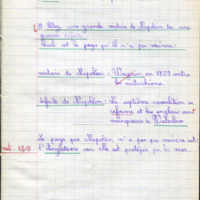 une grande victoire de Napoléon
Quel est le pays qu'il n'a pas vaincu :
victoire de Napoléon : Wagram en 1809 contre
les autrichiens.
défaite de Napoléon : La septième coalition se
reforme et les anglais sont
vainqueurs à Waterloo
Le pays que Napoléon n'a pas pu vaincre est
l'Angleterre car elle est protégée par la mer.